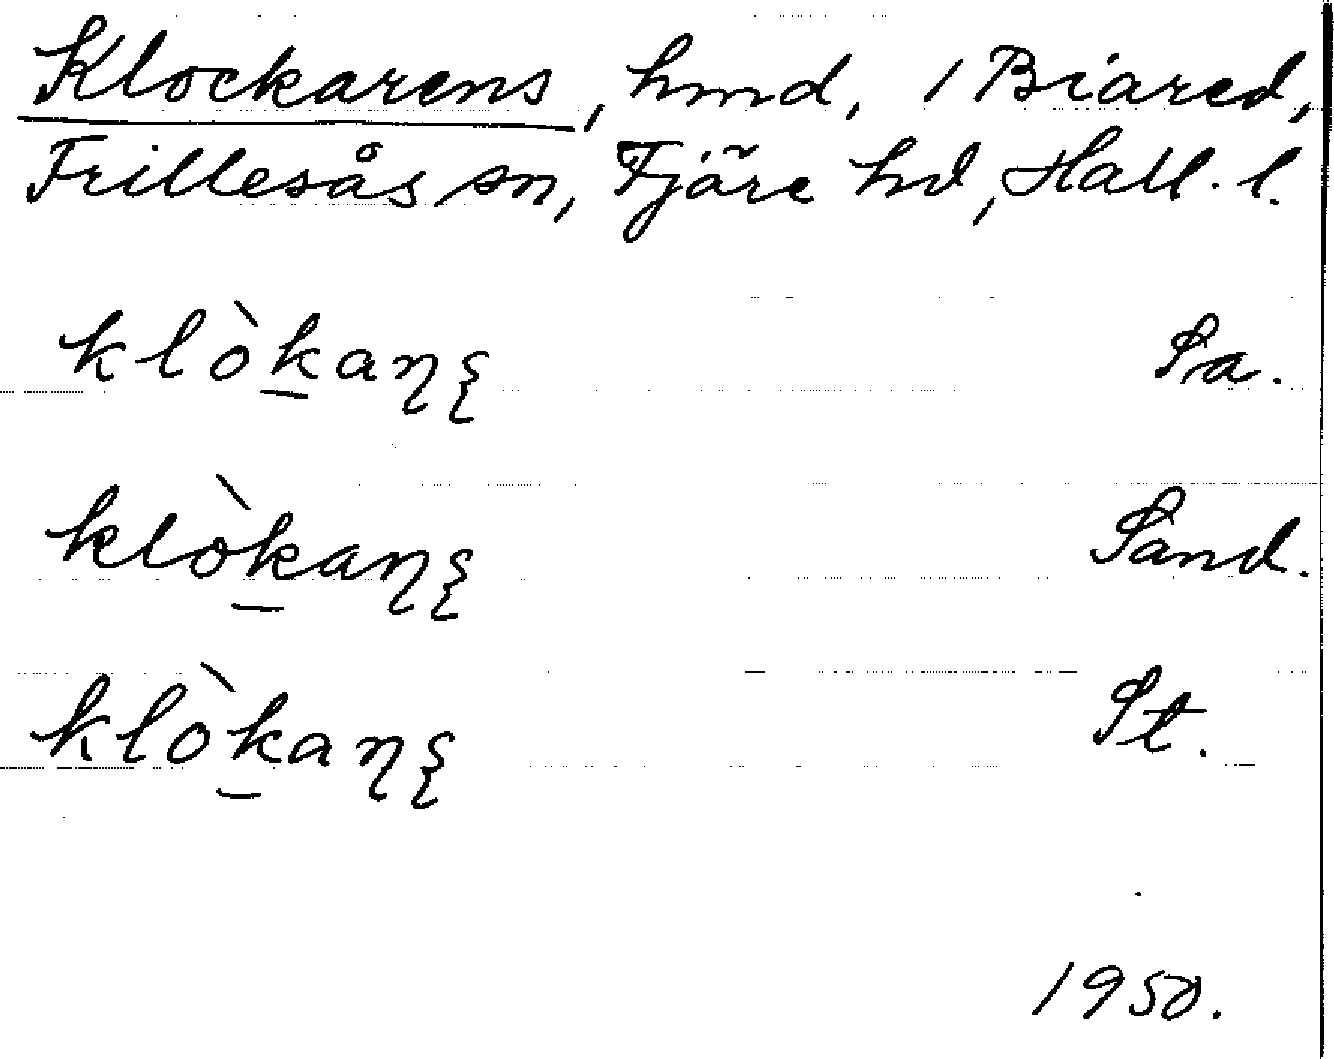 Klockarens, hmd, 1 Biared,
Frillesås sn, Fjäre hd, Hall. l.
klòkaɳʂ Sa.
klòkaɳʂ Sand.
klòkaɳʂ St.
1950.